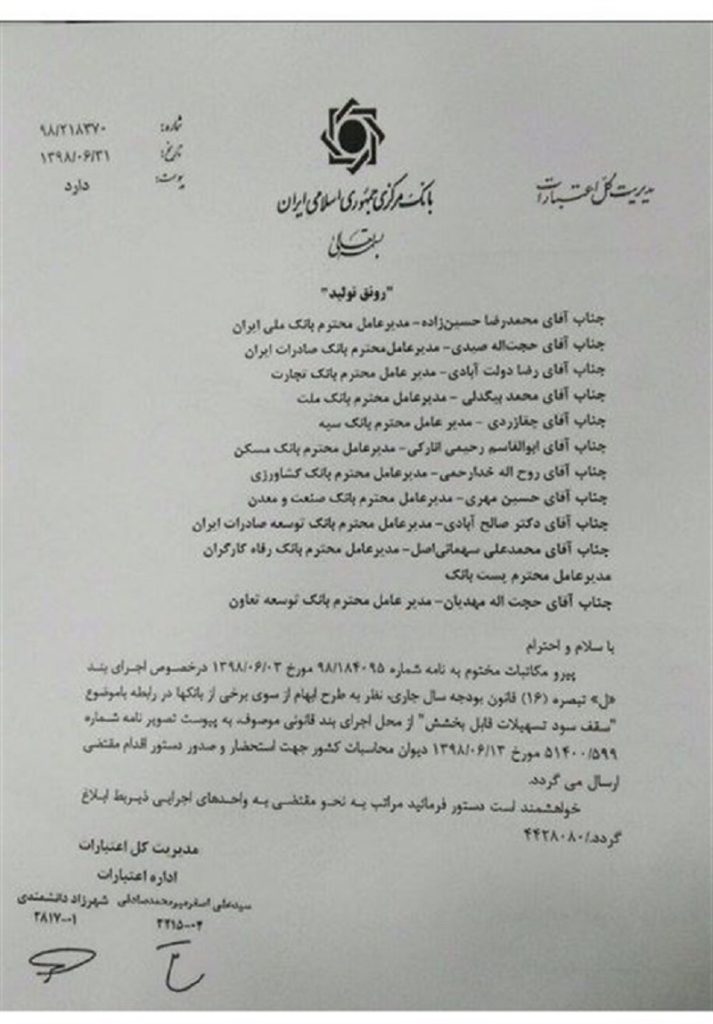 شماره: ۹۸/۲۱۸۳۷۰
تاریخ: ۱۳۹۸/۰۶/۳۱
پیوست: دارد
مدیریت کل اعتبارات
بانک مرکزی جمهوری اسلامی ایران
بسمه تعالی
"رونق تولید"
جناب آقای محمدرضا حسین‌زاده- مدیرعامل محترم بانک ملی ایران
جناب آقای حجت‌اله صیدی- مدیرعامل محترم بانک صادرات ایران
جناب آقای رضا دولت آبادی- مدیر عامل محترم بانک تجارت
جناب آقای محمد بیگدلی - مدیرعامل محترم بانک ملت
جناب آقای چقازردی - مدیر عامل محترم بانک سپه
جناب آقای ابوالقاسم رحیمی انارکی- مدیرعامل محترم بانک مسکن
جناب آقای روح اله خدارحمی- مدیرعامل محترم بانک کشاورزی
جناب آقای حسین مهری- مدیرعامل محترم بانک صنعت و معدن
جناب آقای دکتر صالح آبادی- مدیرعامل محترم بانک توسعه صادرات ایران
جناب آقای محمدعلی سهمانی‌اصل- مدیرعامل محترم بانک رفاه کارگران
مدیرعامل محترم پست بانک
جناب آقای حجت اله مهدیان- مدیر عامل محترم بانک توسعه تعاون
با سلام و احترام
پیرو مکاتبات مختوم به نامه شماره ۹۸/۱۸۴۰۹۵ مورخ ۱۳۹۸/۰۶/۰۳ درخصوص اجرای بند
«ل» تبصره (۱۶) قانون بودجه سال جاری، نظر به طرح ابهام از سوی برخی از بانکها در رابطه باموضوع
"سقف سود تسهیلات قابل بخشش" از محل اجرای بند قانونی موصوف، به پیوست تصویر نامه شماره
۵۱۴۰۰/۵۹۹ مورخ ۱۳۹۸/۰۶/۱۳ دیوان محاسبات کشور جهت استحضار و صدور دستور اقدام مقتضی
ارسال می گردد.
خواهشمند است دستور فرمائید مراتب به نحو مقتضی به واحدهای اجرایی ذیربط ابلاغ
گردد./۴۴۲۸۰۸۰
مدیریت کل اعتبارات
اداره اعتبارات
سیدعلی اصغر میرمحمدصادقی شهرزاد دانشمندی
۲۲۱۵-۰۴ ۲۸۱۷-۰۱